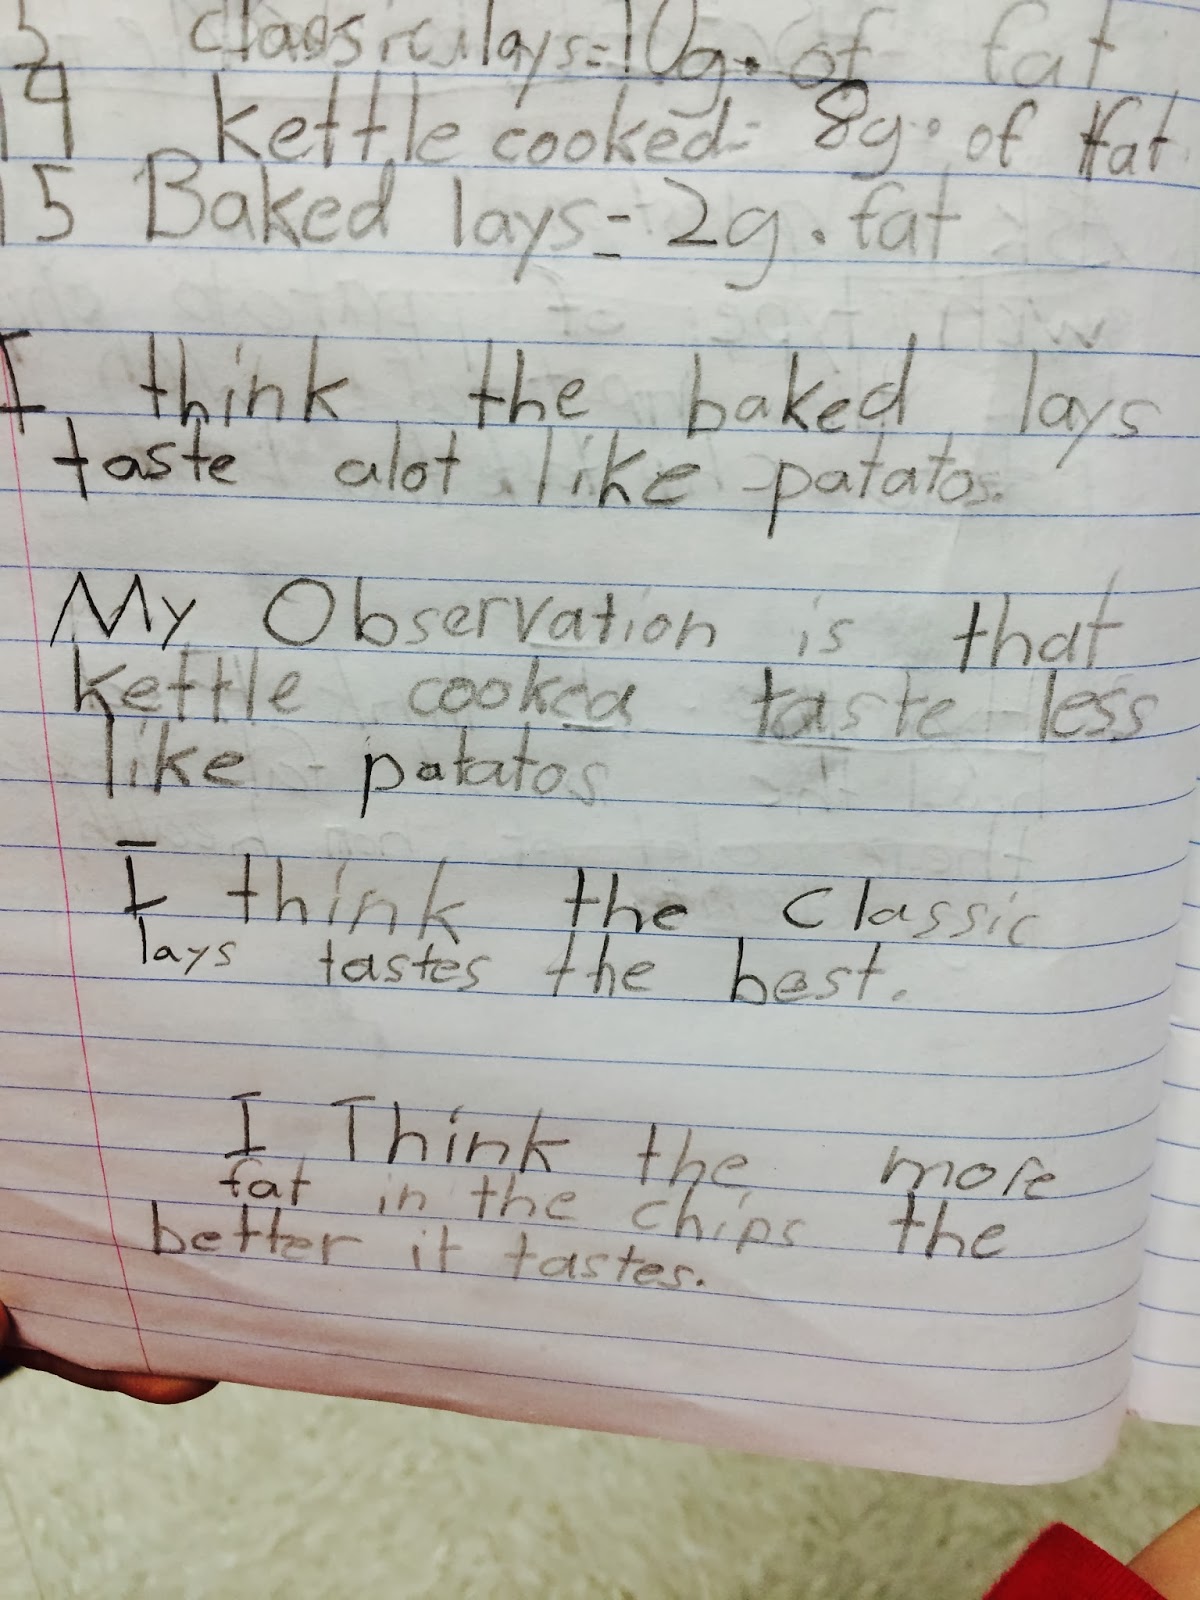 classic lays=10g. of fat
14 kettle cooked= 8g. of fat
15 Baked lays= 2g. fat
I think the baked lays
taste alot like patatos.
My Observation is that
kettle cooked taste less
like patatos
I think the classic
lays tastes the best.
I Think the more
fat in the chips the
better it tastes.